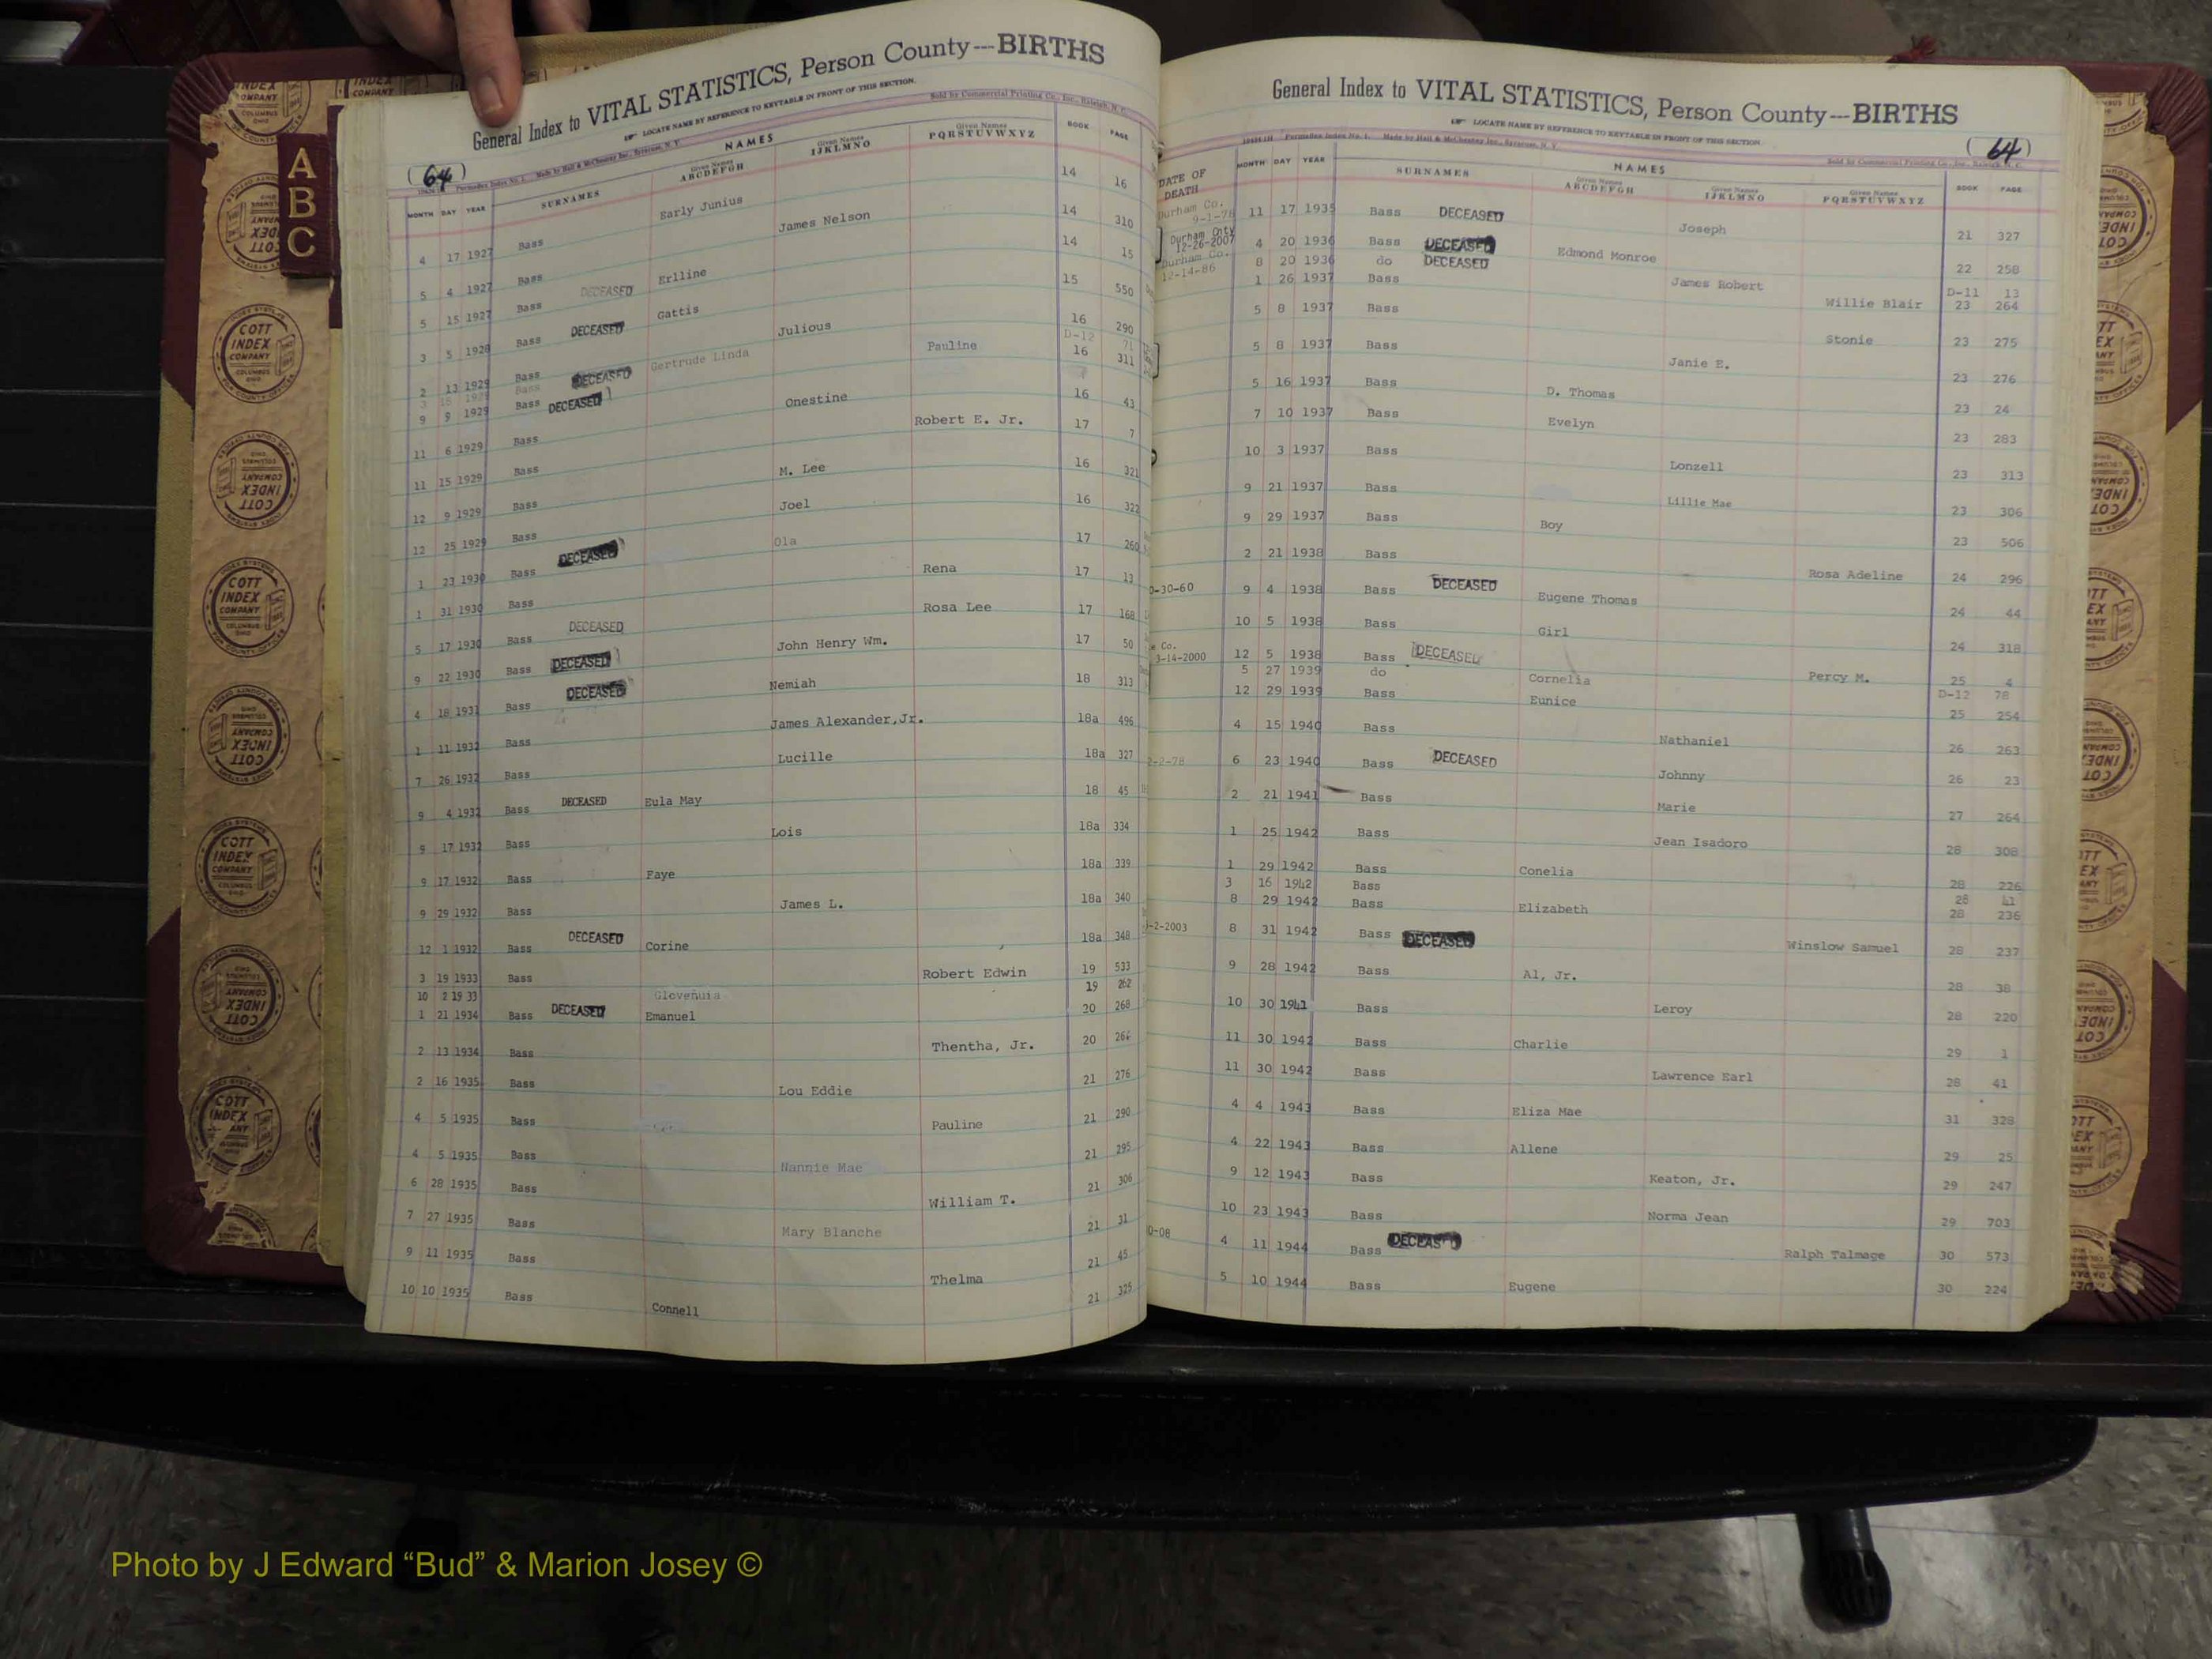 General Index to VITAL STATISTICS, Person County---BIRTHS
LOCATE NAME BY REFERENCE TO KEYTABLE IN FRONT OF THIS SECTION.
(64)
Sold by Commercial Printing Co., Inc., Raleigh, N. C.
MONTH DAY YEAR SURNAMES NAMES Given Names ABCDEFGH Given Names IJKLMNO Given Names PQRSTUVWXYZ BOOK PAGE
4 17 1927 Bass Early Junius 14 16
5 4 1927 Bass James Nelson 14 310
5 15 1927 Bass DECEASED Erlline 14 15
3 5 1928 Bass DECEASED Gattis 15 550
2 13 1929 Bass Julious 16 290
Bass DECEASED Gertrude Linda D-12 71
9 9 1929 Bass DECEASED Pauline 16 311
11 6 1929 Bass Onestine 16 43
11 15 1929 Bass Robert E. Jr. 17 7
12 9 1929 Bass M. Lee 16 321
12 25 1929 Bass Joel 16 322
1 23 1930 Bass DECEASED Ola 17 260
1 31 1930 Bass Rena 17 13
5 17 1930 Bass DECEASED Rosa Lee 17 168
9 22 1930 Bass DECEASED John Henry Wm. 17 50
4 18 1931 Bass DECEASED Nemiah 18 313
1 11 1932 Bass James Alexander,Jr. 18a 496
7 26 1932 Bass Lucille 18a 327
9 4 1932 Bass DECEASED Eula May 18 45
9 17 1932 Bass Lois 18a 334
9 17 1932 Bass Faye 18a 339
9 29 1932 Bass James L. 18a 340
12 1 1932 Bass DECEASED Corine 18a 348
3 19 1933 Bass Robert Edwin 19 533
10 2 19 33 Glovenuia 19 262
1 21 1934 Bass DECEASED Emanuel 20 268
2 13 1934 Bass Thentha, Jr. 20 266
2 16 1935 Bass Lou Eddie 21 276
4 5 1935 Bass Pauline 21 290
4 5 1935 Bass Nannie Mae 21 295
6 28 1935 Bass William T. 21 306
7 27 1935 Bass Mary Blanche 21 31
9 11 1935 Bass Thelma 21 45
10 10 1935 Bass Connell 21 325
General Index to VITAL STATISTICS, Person County---BIRTHS
LOCATE NAME BY REFERENCE TO KEYTABLE IN FRONT OF THIS SECTION.
(64)
Sold by Commercial Printing Co., Inc., Raleigh, N. C.
DATE OF DEATH MONTH DAY YEAR SURNAMES NAMES Given Names ABCDEFGH Given Names IJKLMNO Given Names PQRSTUVWXYZ BOOK PAGE
Durham Co. 9-1-78 11 17 1935 Bass DECEASED Joseph 21 327
Durham Cnty 12-26-2007 4 20 1936 Bass DECEASED Edmond Monroe 22 258
Durham Co. 12-14-86 8 20 1936 do DECEASED James Robert D-11 13
1 26 1937 Bass Willie Blair 23 264
5 8 1937 Bass Stonie 23 275
5 8 1937 Bass Janie E. 23 276
5 16 1937 Bass D. Thomas 23 24
7 10 1937 Bass Evelyn 23 283
10 3 1937 Bass Lonzell 23 313
9 21 1937 Bass Lillie Mae 23 306
9 29 1937 Bass Boy 23 506
2 21 1938 Bass Rosa Adeline 24 296
0-30-60 9 4 1938 Bass DECEASED Eugene Thomas 24 44
10 5 1938 Bass Girl 24 318
Co. 3-14-2000 12 5 1938 Bass DECEASED Percy M. 25 4
5 27 1939 do Cornelia D-12 78
12 29 1939 Bass Eunice 25 254
4 15 1940 Bass Nathaniel 26 263
2-2-78 6 23 1940 Bass DECEASED Johnny 26 23
2 21 1941 Bass Marie 27 264
1 25 1942 Bass Jean Isadoro 28 308
1 29 1942 Bass Conelia 28 226
3 16 1942 Bass 28 41
8 29 1942 Bass Elizabeth 28 236
-2-2003 8 31 1942 Bass DECEASED Winslow Samuel 28 237
9 28 1942 Bass Al, Jr. 28 38
10 30 1941 Bass Leroy 28 220
11 30 1942 Bass Charlie 29 1
11 30 1942 Bass Lawrence Earl 28 41
4 4 1943 Bass Eliza Mae 31 328
4 22 1943 Bass Allene 29 25
9 12 1943 Bass Keaton, Jr. 29 247
10 23 1943 Bass Norma Jean 29 703
0-08 4 11 1944 Bass DECEASED Ralph Talmage 30 573
5 10 1944 Bass Eugene 30 224
A
B
C
COTT INDEX COMPANY COLUMBUS OHIO
Photo by J Edward “Bud” & Marion Josey ©